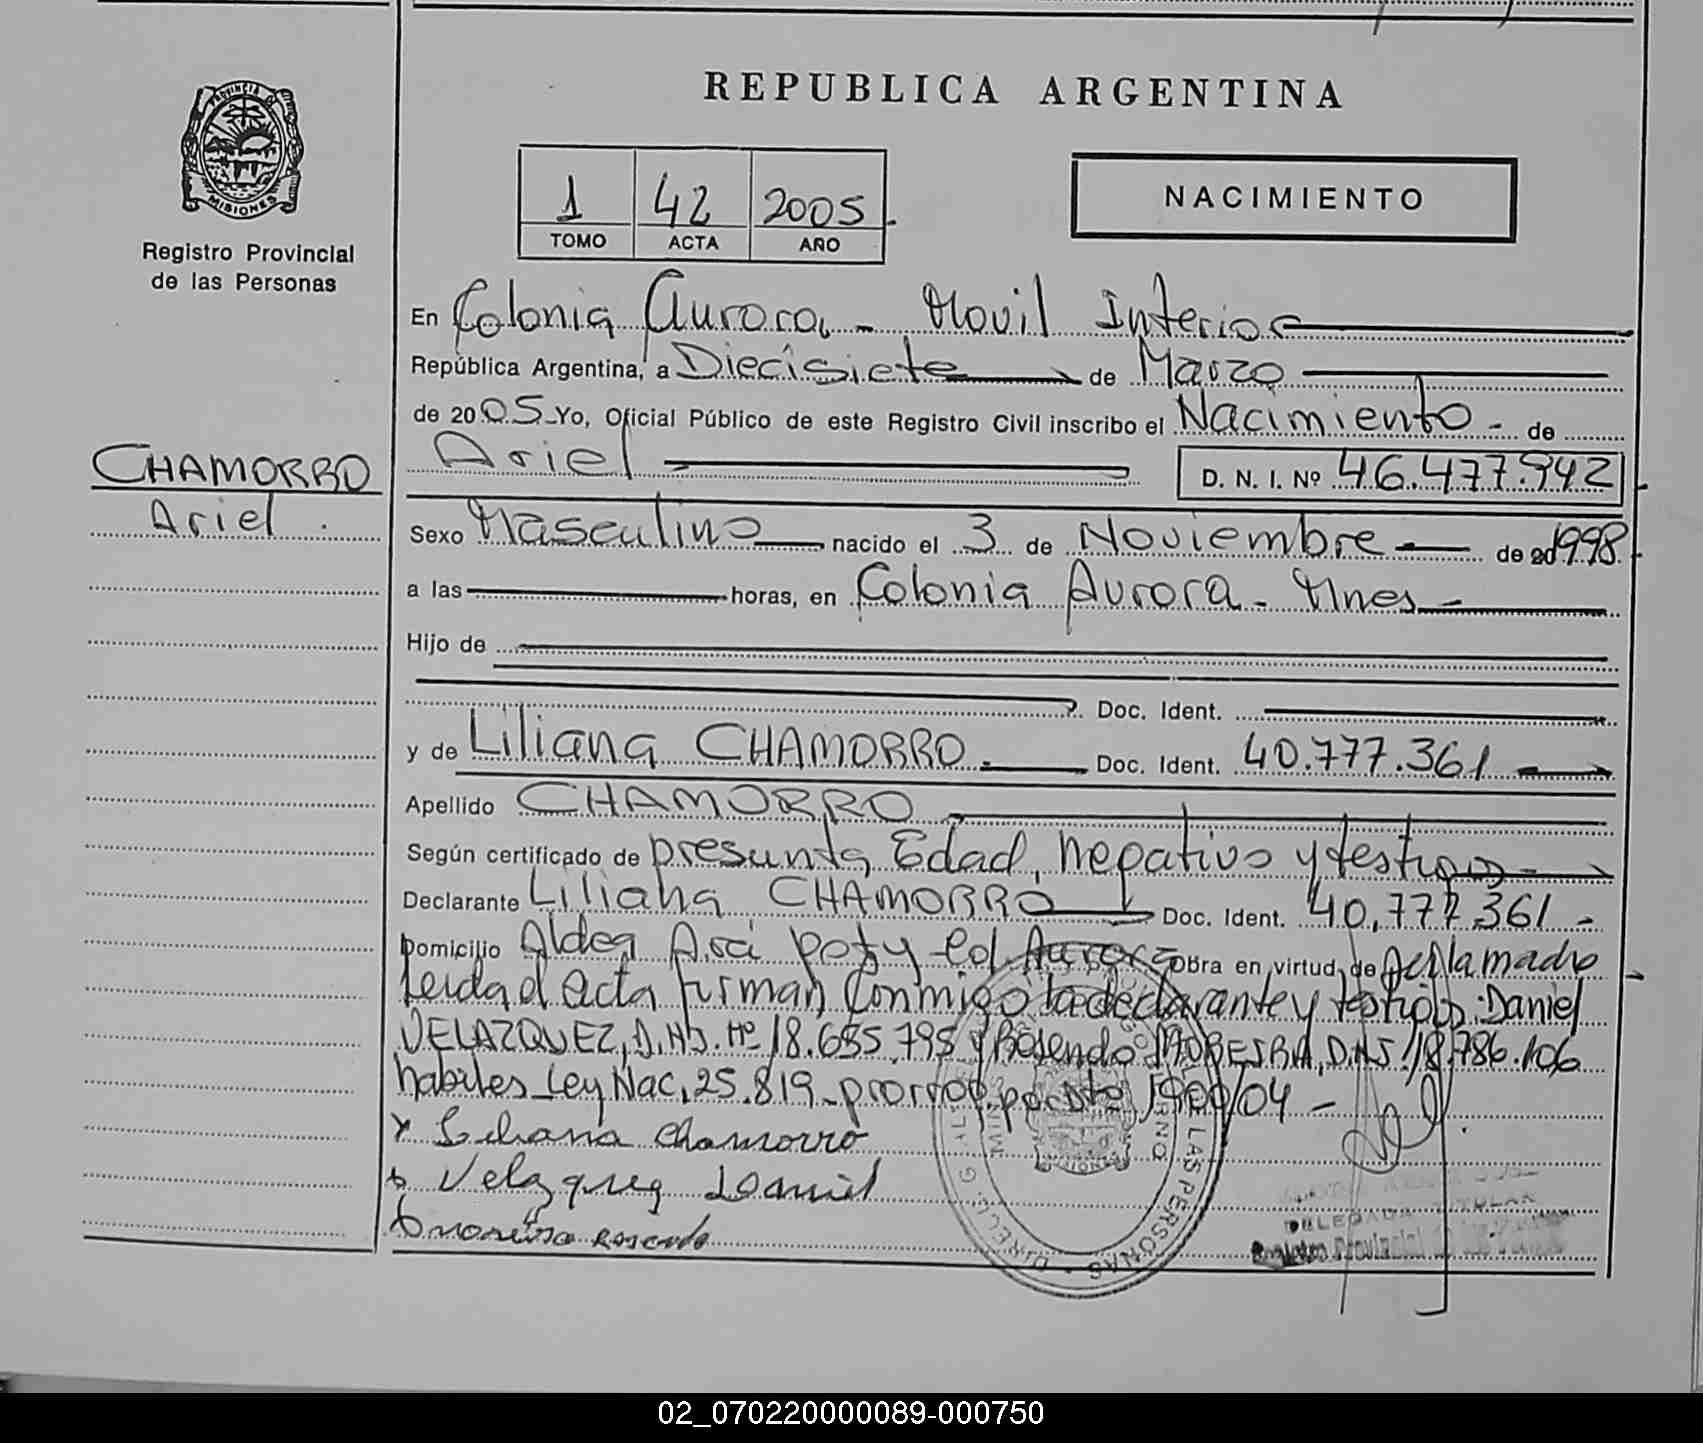 REPUBLICA ARGENTINA
PROVINCIA DE
MISIONES
Registro Provincial
de las Personas
1 42 2005
TOMO ACTA AÑO
NACIMIENTO
En Colonia Aurora - Movil Interior
República Argentina, a Diecisiete de Marzo
de 2005 Yo, Oficial Público de este Registro Civil inscribo el Nacimiento - de
Ariel D. N. I. Nº 46.477.942
CHAMORRO
Ariel.
Sexo Masculino nacido el 3 de Noviembre de 1998
a las horas, en Colonia Aurora - Mnes -
Hijo de
Doc. Ident.
y de Liliana CHAMORRO. Doc. Ident. 40.777.361
Apellido CHAMORRO
Según certificado de presunta Edad, negativo y testigos
Declarante Liliana CHAMORRO Doc. Ident. 40.777.361 -
Domicilio Aldea Poty Col. Aurora Obra en virtud de la madre
Leida el acta firman conmigo la declarante y testigos: Daniel
VELAZQUEZ, D.N.I. Nº 18.655.795 y Rosendo MOREIRA, D.N.I. 18.786.106
habiles Ley Nac. 25.819 - prorrog. por Dto 1900/04 -
x Liliana Chamorro
Velazquez Daniel
Moreira Rosendo
LAS PERSONAS
DELEGADA TITULAR
Registro Provincial de las
02_070220000089-000750